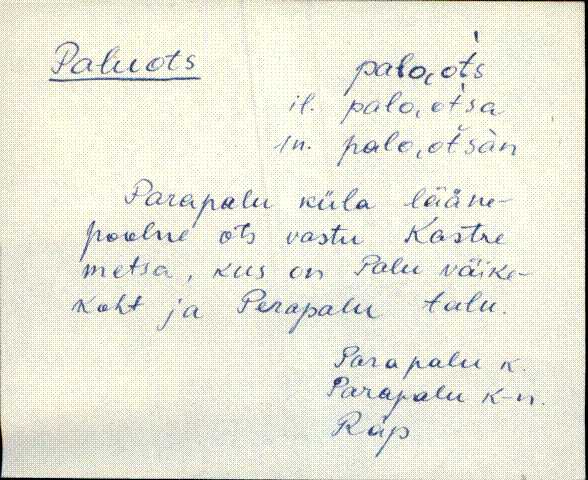 Paluots
palo,ot̀s
il. palo,ot̀sa
in. palo,otsàn
Parapalu küla lääne-
poolne ots vastu Kastre
metsa, kus on Palu väike-
koht ja Perapalu talu.
Parapalu k.
Parapalu k-n.
Räp